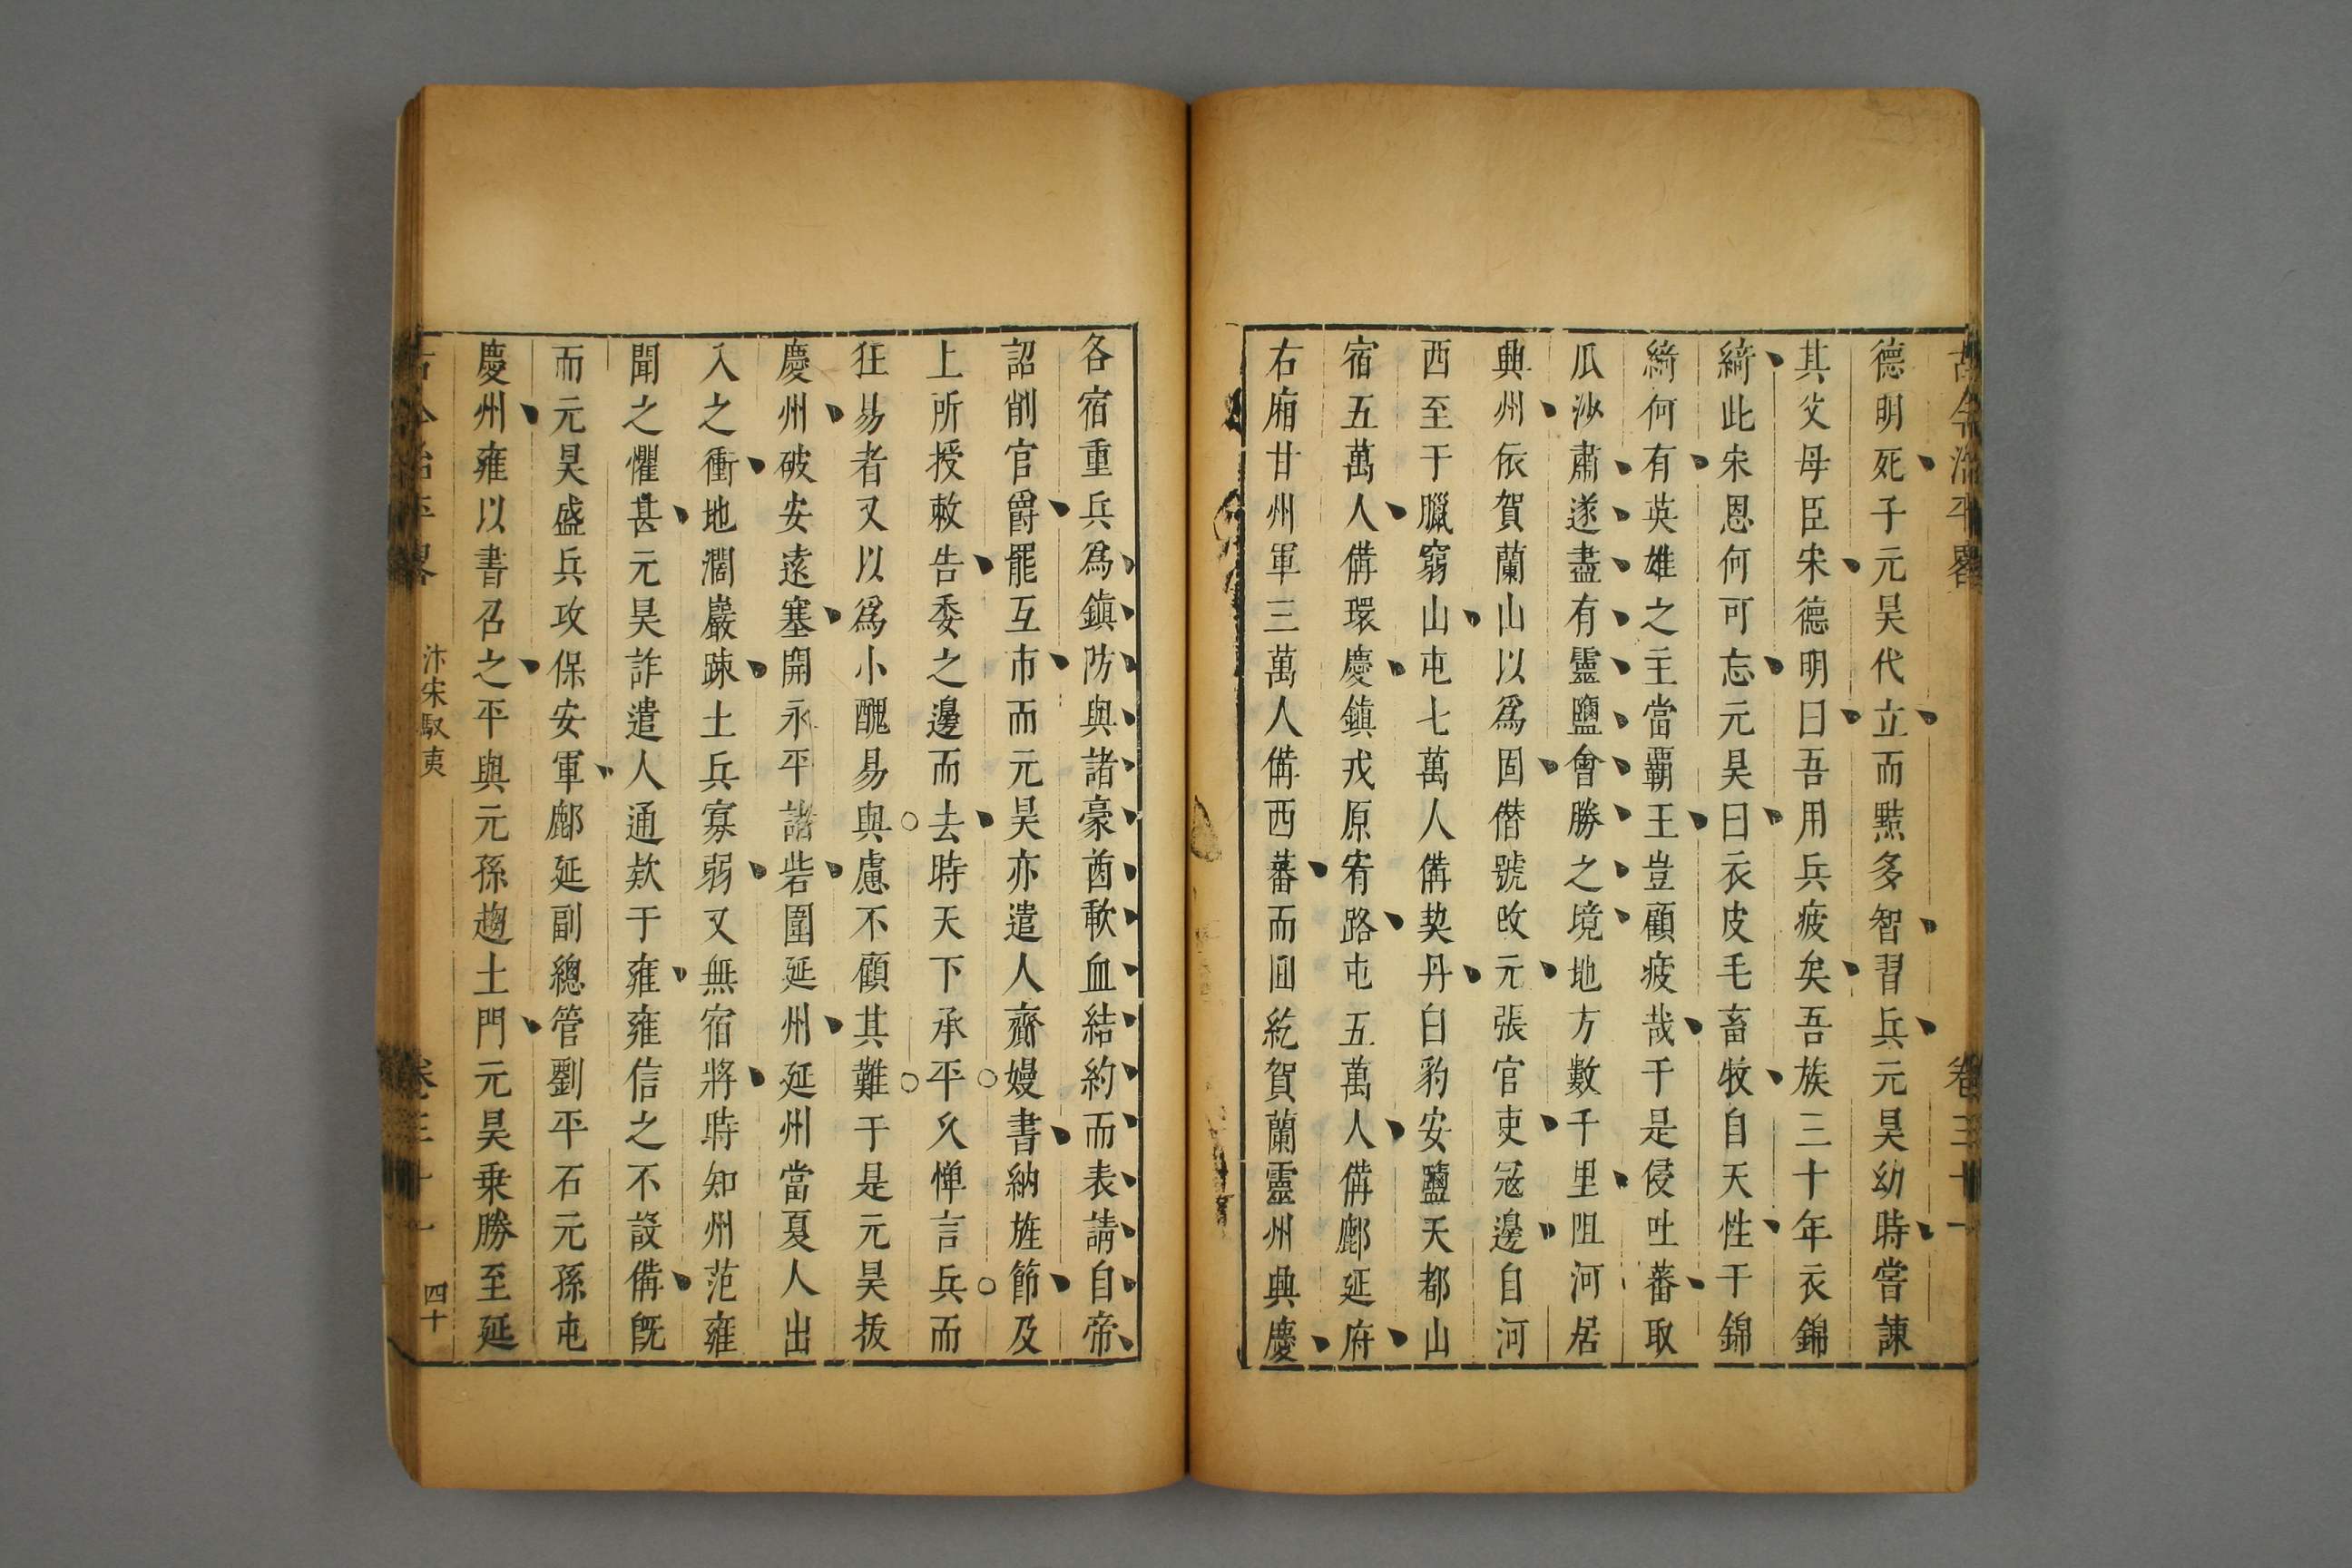 古今治平畧
卷三十一
德明死子元昊代立而黠多智習兵元昊幼時嘗諫
其父毋臣宋德明曰吾用兵疲矣吾族三十年衣錦
綺此宋恩何可忘元昊曰衣皮毛畜牧自天性干錦
綺何有英雄之主當覇王豈顧疲哉于是侵吐蕃取
瓜沙肅遂盡有靈鹽會勝之境地方數千里阻河居
興州依賀蘭山以爲固僣號改元張官吏冦邊自河
西至于臘窮山屯七萬人備契丹白豹安鹽天都山
宿五萬人備環慶鎮戎原宥路屯五萬人備鄜延府
右廂甘州軍三萬人備西蕃而囬紇賀蘭靈州興慶
各宿重兵爲鎮防與諸豪酋歃血結約而表請自帝
詔削官爵罷互市而元昊亦遣人齎嫚書納旌節及
上所授敕告委之邊而去時天下承平久憚言兵而
狂易者又以爲小醜易與慮不顧其難于是元昊拔
慶州破安遠塞開永平諸砦圍延州延州當夏人出
入之衝地濶巖疎土兵寡弱又無宿將時知州范雍
聞之懼甚元昊詐遣人通欵于雍雍信之不設備旣
而元昊盛兵攻保安軍鄜延副總管劉平石元孫屯
慶州雍以書召之平與元孫趨土門元昊乗勝至延
古今治平畧
汴宋馭夷
卷三十一
四十